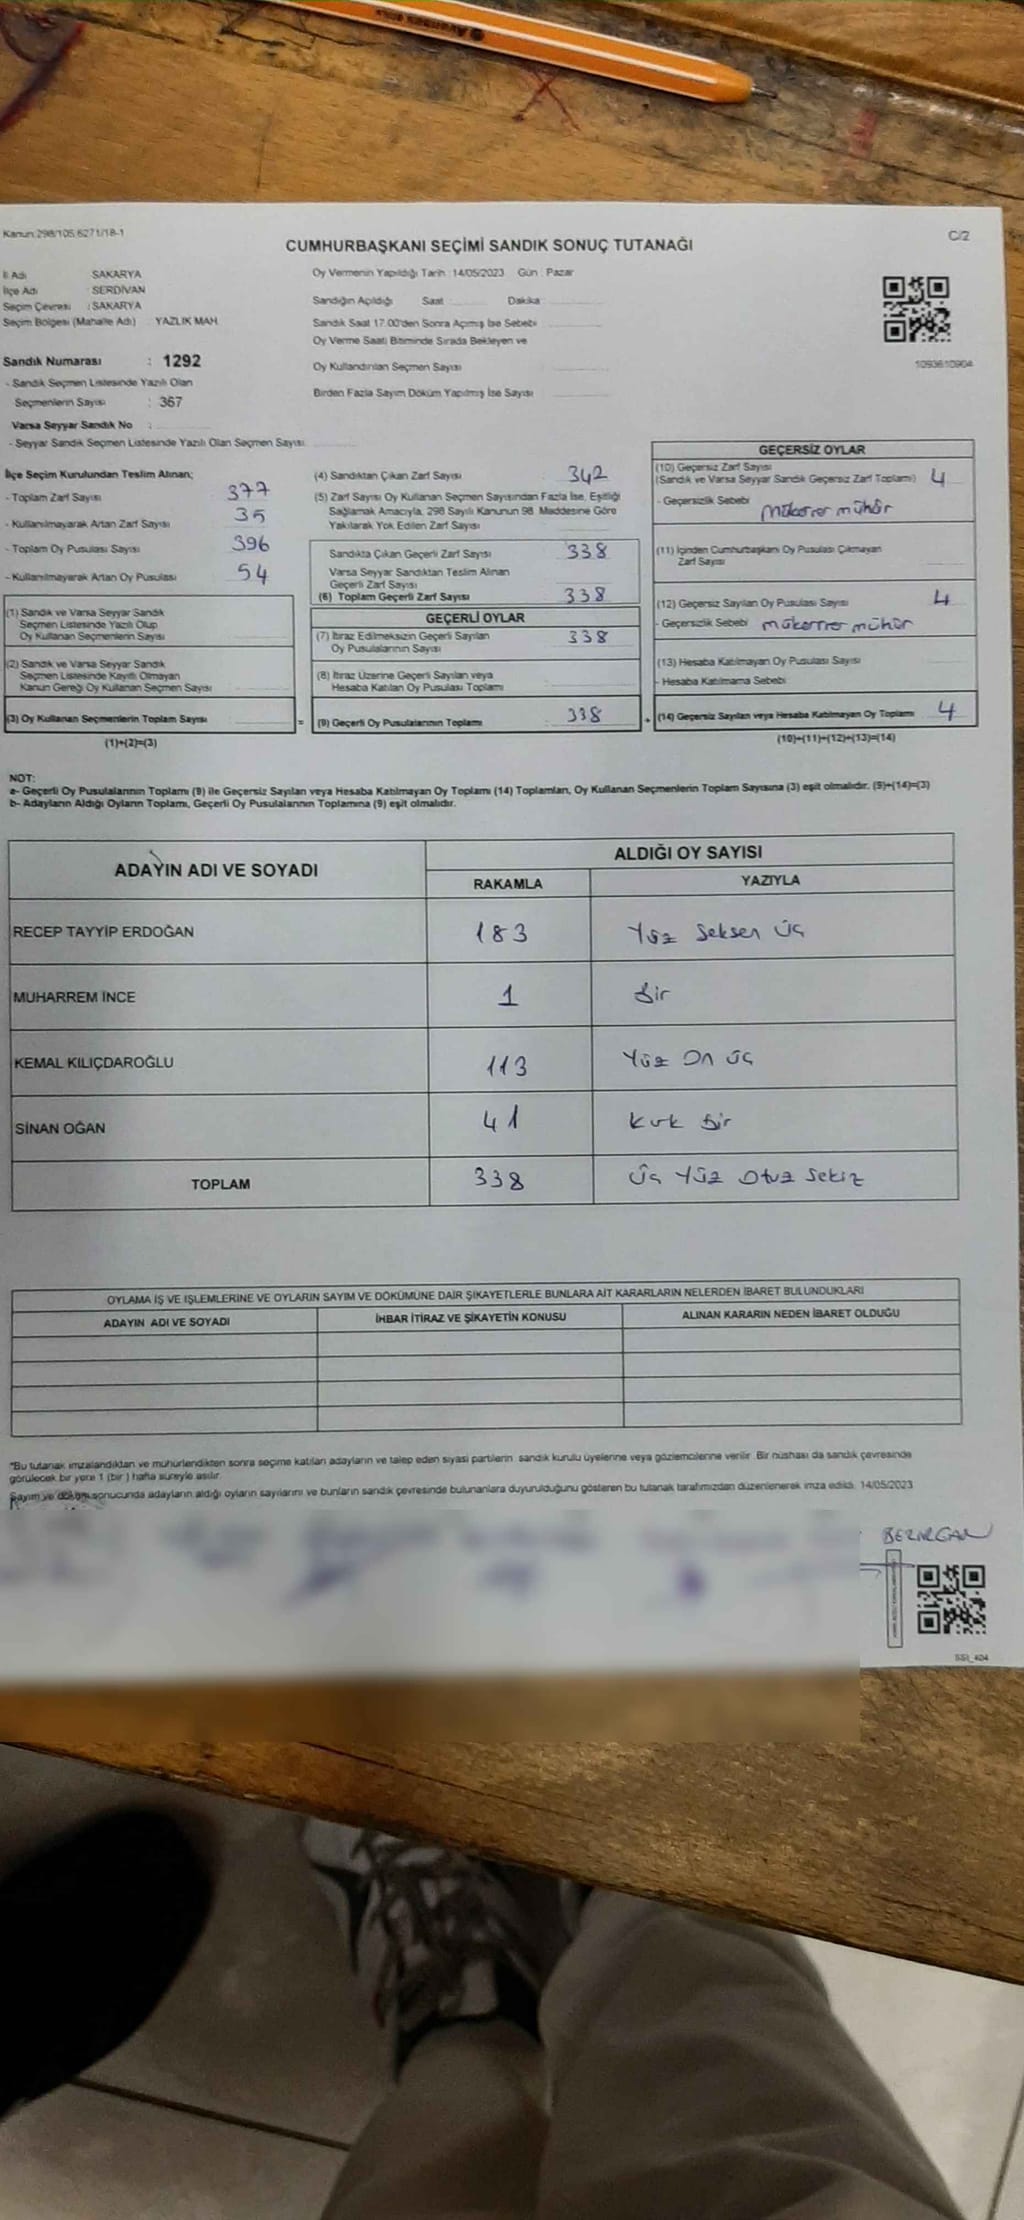 Kanun:298/105,6271/18-1
C/2
CUMHURBAŞKANI SEÇİMİ SANDIK SONUÇ TUTANAĞI
İl Adı SAKARYA
İlçe Adı : SERDİVAN
Seçim Çevresi : SAKARYA
Seçim Bölgesi (Mahalle Adı) : YAZLIK MAH.
Oy Vermenin Yapıldığı Tarih : 14/05/2023 Gün : Pazar
Sandığın Açıldığı Saat Dakika
Sandık Saat 17.00'den Sonra Açımış İse Sebebi
Oy Verme Saati Bitiminde Sırada Bekleyen ve
Oy Kullandırılan Seçmen Sayısı
Birden Fazla Sayım Döküm Yapılmış İse Sayısı
1093610904
Sandık Numarası : 1292
- Sandık Seçmen Listesinde Yazılı Olan
Seçmenlerin Sayısı : 367
Varsa Seyyar Sandık No :
- Seyyar Sandık Seçmen Listesinde Yazılı Olan Seçmen Sayısı
İlçe Seçim Kurulundan Teslim Alınan;
- Toplam Zarf Sayısı 377
- Kullanılmayarak Artan Zarf Sayısı 35
- Toplam Oy Pusulası Sayısı 396
- Kullanılmayarak Artan Oy Pusulası 54
(1) Sandık ve Varsa Seyyar Sandık
Seçmen Listesinde Yazılı Olup
Oy Kullanan Seçmenlerin Sayısı
(2) Sandık ve Varsa Seyyar Sandık
Seçmen Listesinde Kayıtlı Olmayan
Kanun Gereği Oy Kullanan Seçmen Sayısı
(3) Oy Kullanan Seçmenlerin Toplam Sayısı =
(1)+(2)=(3)
(4) Sandıktan Çıkan Zarf Sayısı 342
(5) Zarf Sayısı Oy Kullanan Seçmen Sayısından Fazla İse, Eşitliği
Sağlamak Amacıyla, 298 Sayılı Kanunun 98. Maddesine Göre
Yakılarak Yok Edilen Zarf Sayısı
Sandıkta Çıkan Geçerli Zarf Sayısı 338
Varsa Seyyar Sandıktan Teslim Alınan
Geçerli Zarf Sayısı
(6) Toplam Geçerli Zarf Sayısı 338
GEÇERLİ OYLAR
(7) İtiraz Edilmeksizin Geçerli Sayılan
Oy Pusulalarının Sayısı 338
(8) İtiraz Üzerine Geçerli Sayılan veya
Hesaba Katılan Oy Pusulası Toplamı
(9) Geçerli Oy Pusulalarının Toplamı 338 +
GEÇERSİZ OYLAR
(10) Geçersiz Zarf Sayısı
(Sandık ve Varsa Seyyar Sandık Geçersiz Zarf Toplamı) 4
- Geçersizlik Sebebi mükerrer mühür
(11) İçinden Cumhurbaşkanı Oy Pusulası Çıkmayan
Zarf Sayısı
(12) Geçersiz Sayılan Oy Pusulası Sayısı 4
- Geçersizlik Sebebi mükerrer mühür
(13) Hesaba Katılmayan Oy Pusulası Sayısı
- Hesaba Katılmama Sebebi
(14) Geçersiz Sayılan veya Hesaba Katılmayan Oy Toplamı 4
(10)+(11)+(12)+(13)=(14)
NOT:
a- Geçerli Oy Pusulalarının Toplamı (9) ile Geçersiz Sayılan veya Hesaba Katılmayan Oy Toplamı (14) Toplamları, Oy Kullanan Seçmenlerin Toplam Sayısına (3) eşit olmalıdır. (9)+(14)=(3)
b- Adayların Aldığı Oyların Toplamı, Geçerli Oy Pusulalarının Toplamına (9) eşit olmalıdır.
ADAYIN ADI VE SOYADI ALDIĞI OY SAYISI
RAKAMLA YAZIYLA
RECEP TAYYİP ERDOĞAN 183 Yüz Seksen Üç
MUHARREM İNCE 1 Bir
KEMAL KILIÇDAROĞLU 113 Yüz On Üç
SİNAN OĞAN 41 Kırk Bir
TOPLAM 338 Üç Yüz Otuz Sekiz
OYLAMA İŞ VE İŞLEMLERİNE VE OYLARIN SAYIM VE DÖKÜMÜNE DAİR ŞİKAYETLERLE BUNLARA AİT KARARLARIN NELERDEN İBARET BULUNDUKLARI
ADAYIN ADI VE SOYADI İHBAR İTİRAZ VE ŞİKAYETİN KONUSU ALINAN KARARIN NEDEN İBARET OLDUĞU
*Bu tutanak imzalandıktan ve mühürlendikten sonra seçime katılan adayların ve talep eden siyasi partilerin sandık kurulu üyelerine veya gözlemcilerine verilir. Bir nüshası da sandık çevresinde
görülecek bir yere 1 (bir ) hafta süreyle asılır.
Sayım ve döküm sonucunda adayların aldığı oyların sayılarını ve bunların sandık çevresinde bulunanlara duyurulduğunu gösteren bu tutanak tarafımızdan düzenlenerek imza edildi. 14/05/2023
SSI_404